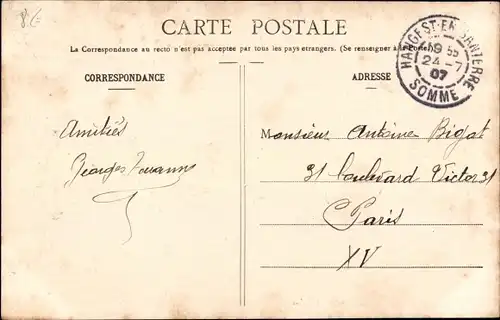 CARTE POSTALE
La Correspondance au recto n'est pas acceptée par tous les pays étrangers. (Se renseigner à la Poste)
CORRESPONDANCE
ADRESSE
HANGEST-EN-SANTERRE
24-7
07
SOMME
Amitiés
Georges
Monsieur Antoine Bigot
31 boulevard Victor 31
Paris
XV